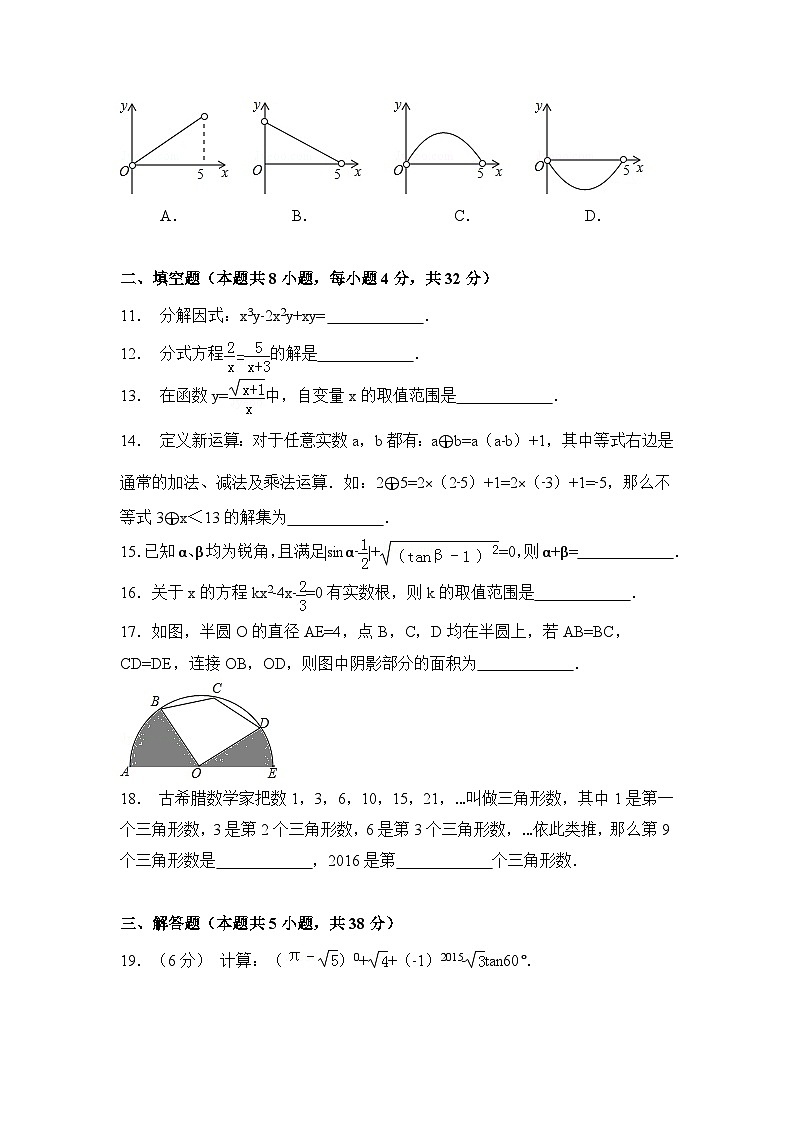 y y y y
O 5 x O 5 x O 5 x O 5 x
A. B. C. D.
二、填空题（本题共8小题，每小题4分，共32分）
11. 分解因式：x³y-2x²y+xy=____________.
12. 分式方程2/x=5/(x+3)的解是____________.
13. 在函数y=√(x+1)/x中，自变量x的取值范围是____________.
14. 定义新运算：对于任意实数a，b都有：a⊕b=a（a-b）+1，其中等式右边是
通常的加法、减法及乘法运算．如：2⊕5=2×（2-5）+1=2×（-3）+1=-5，那么不
等式3⊕x＜13的解集为____________.
15.已知α、β均为锐角，且满足|sinα-1/2|+√(（tanβ-1）²)=0，则α+β=____________.
16．关于x的方程kx²-4x-2/3=0有实数根，则k的取值范围是____________.
17．如图，半圆O的直径AE=4，点B，C，D均在半圆上，若AB=BC，
CD=DE，连接OB，OD，则图中阴影部分的面积为____________.
C
B D
A O E
18. 古希腊数学家把数1，3，6，10，15，21，…叫做三角形数，其中1是第一
个三角形数，3是第2个三角形数，6是第3个三角形数，…依此类推，那么第9
个三角形数是____________，2016是第____________个三角形数．
三、解答题（本题共5小题，共38分）
19．（6分） 计算：（π-√5）⁰+√4+（-1）²⁰¹⁵-√3tan60°.